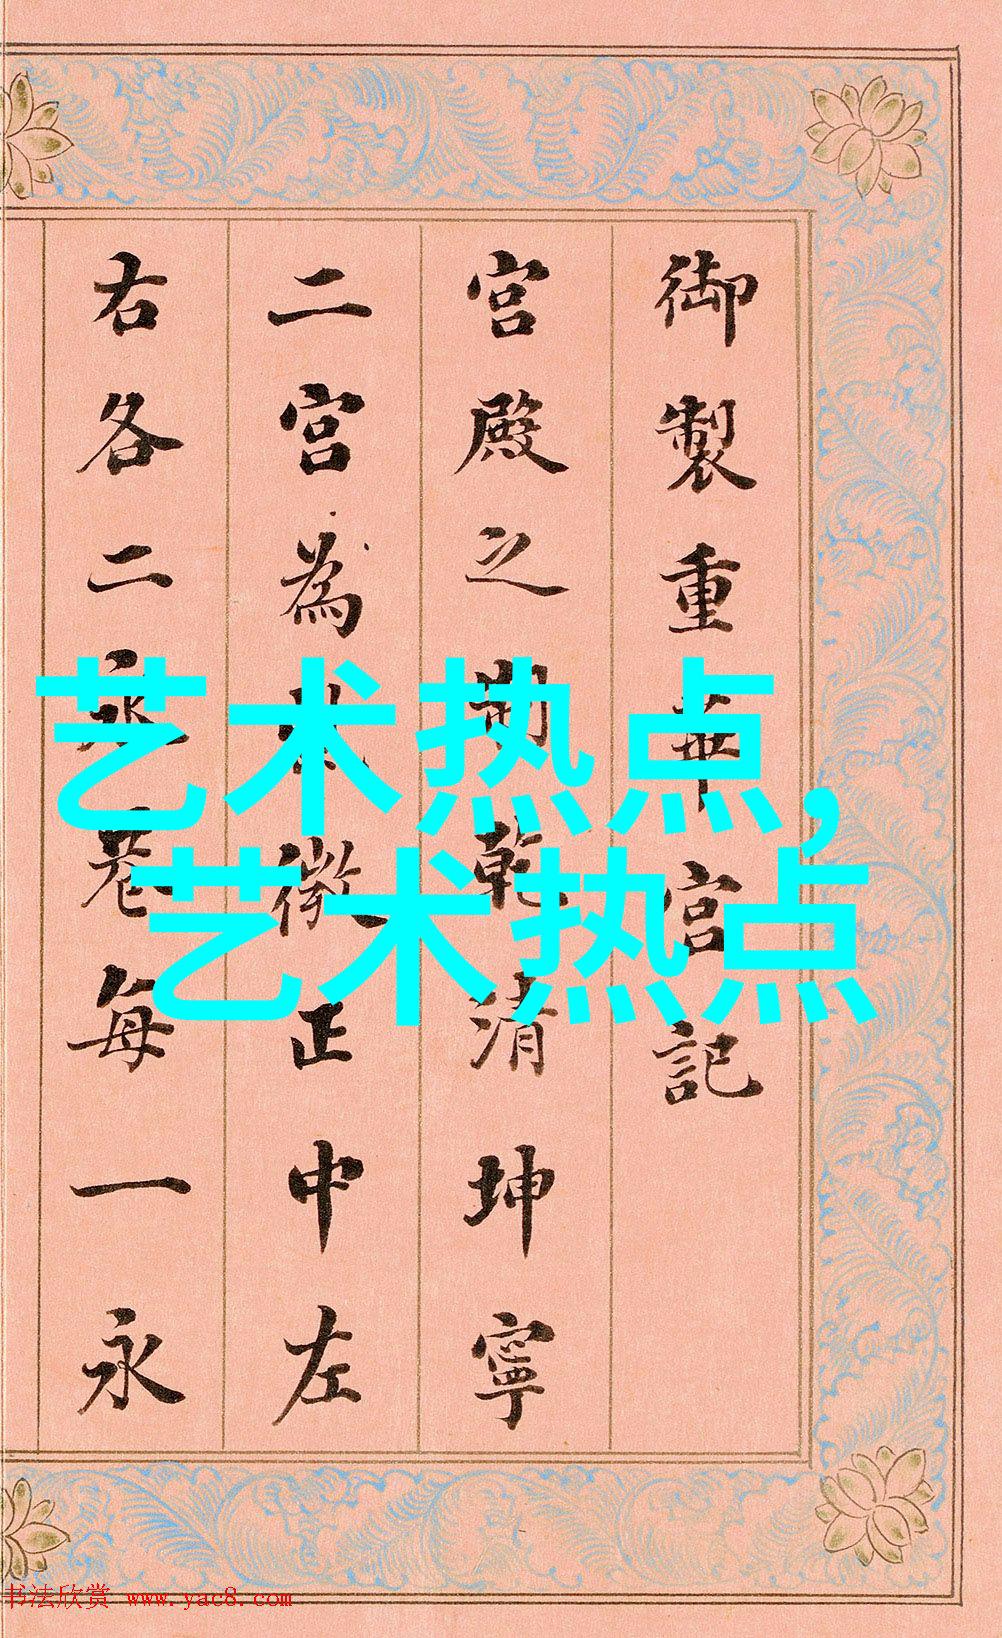 御製重華宮記
宮殿之制乾清坤寧
二宮為微正中左
右各二永巷每一永
艺术热点,
艺术热点
书法欣赏 www.yac8.com